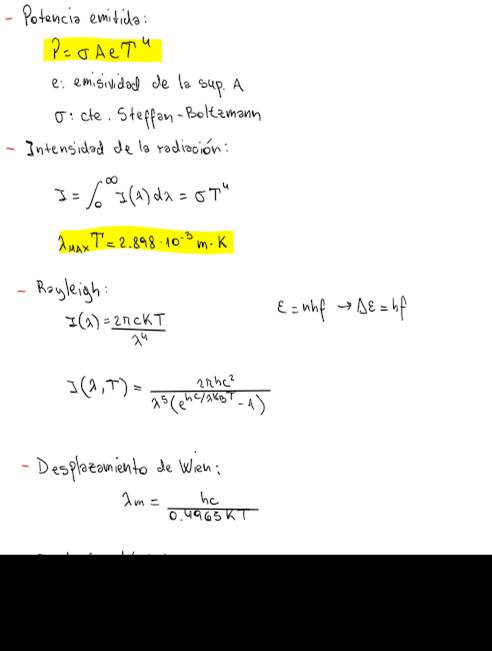 - Potencia emitida:
P = σ A e T⁴
e: emisividad de la sup. A
σ: cte. Steffan-Boltzmann
- Intensidad de la radiación:
I = ∫₀^∞ I(λ) dλ = σT⁴
λ_MAX T = 2.898 · 10⁻³ m·K
- Rayleigh:
I(λ) = 2πcKT / λ⁴
ε = nhf → Δε = hf
I(λ,T) = 2πhc² / λ⁵(e^{hc/λK_BT} - 1)
- Desplazamiento de Wien:
λm = hc / 0.4965KT